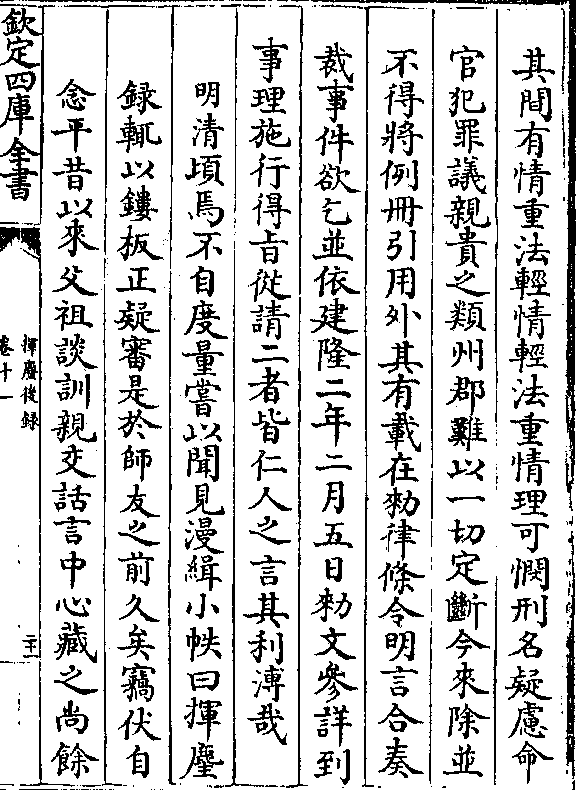 其間有情重法輕情輕法重情理可憫刑名疑慮命
官犯罪議親貴之類州郡難以一切定斷今來除並
不得將例冊引用外其有載在勅律條令明言合奏
裁事件欲乞並依建隆二年二月五日勅文參詳到
事理施行得旨從請二者皆仁人之言其利溥哉
明清頃焉不自度量嘗以聞見漫緝小帙曰揮麈
録輒以鏤板正疑審是於師友之前久矣竊伏自
念平昔以來父祖談訓親交話言中心藏之尚餘
欽定四庫全書
揮麈後録
卷十一
二十一